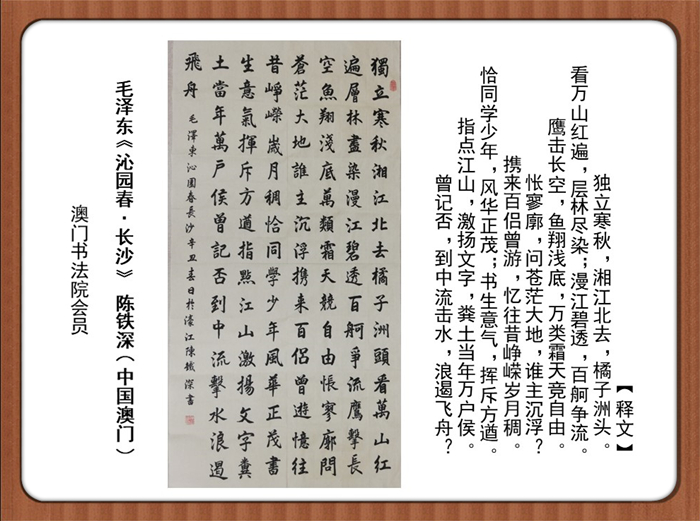 【释文】
独立寒秋，湘江北去，橘子洲头。
看万山红遍，层林尽染；漫江碧透，百舸争流。
鹰击长空，鱼翔浅底，万类霜天竞自由。
怅寥廓，问苍茫大地，谁主沉浮？
携来百侣曾游，忆往昔峥嵘岁月稠。
恰同学少年，风华正茂；书生意气，挥斥方遒。
指点江山，激扬文字，粪土当年万户侯。
曾记否，到中流击水，浪遏飞舟？
獨立寒秋湘江北去橘子洲頭看萬山紅
遍層林盡染漫江碧透百舸爭流鷹擊長
空魚翔淺底萬類霜天競自由悵寥廓問
蒼茫大地誰主沉浮携来百侣曾遊憶往
昔崢嶸歲月稠恰同學少年風華正茂書
生意氣揮斥方遒指點江山激揚文字糞
土當年萬户侯曾記否到中流擊水浪遏
飛舟
毛澤東沁園春長沙辛丑春日於濠江陳鐵深書
毛泽东《沁园春·长沙》 陈铁深（中国澳门）
澳门书法院会员